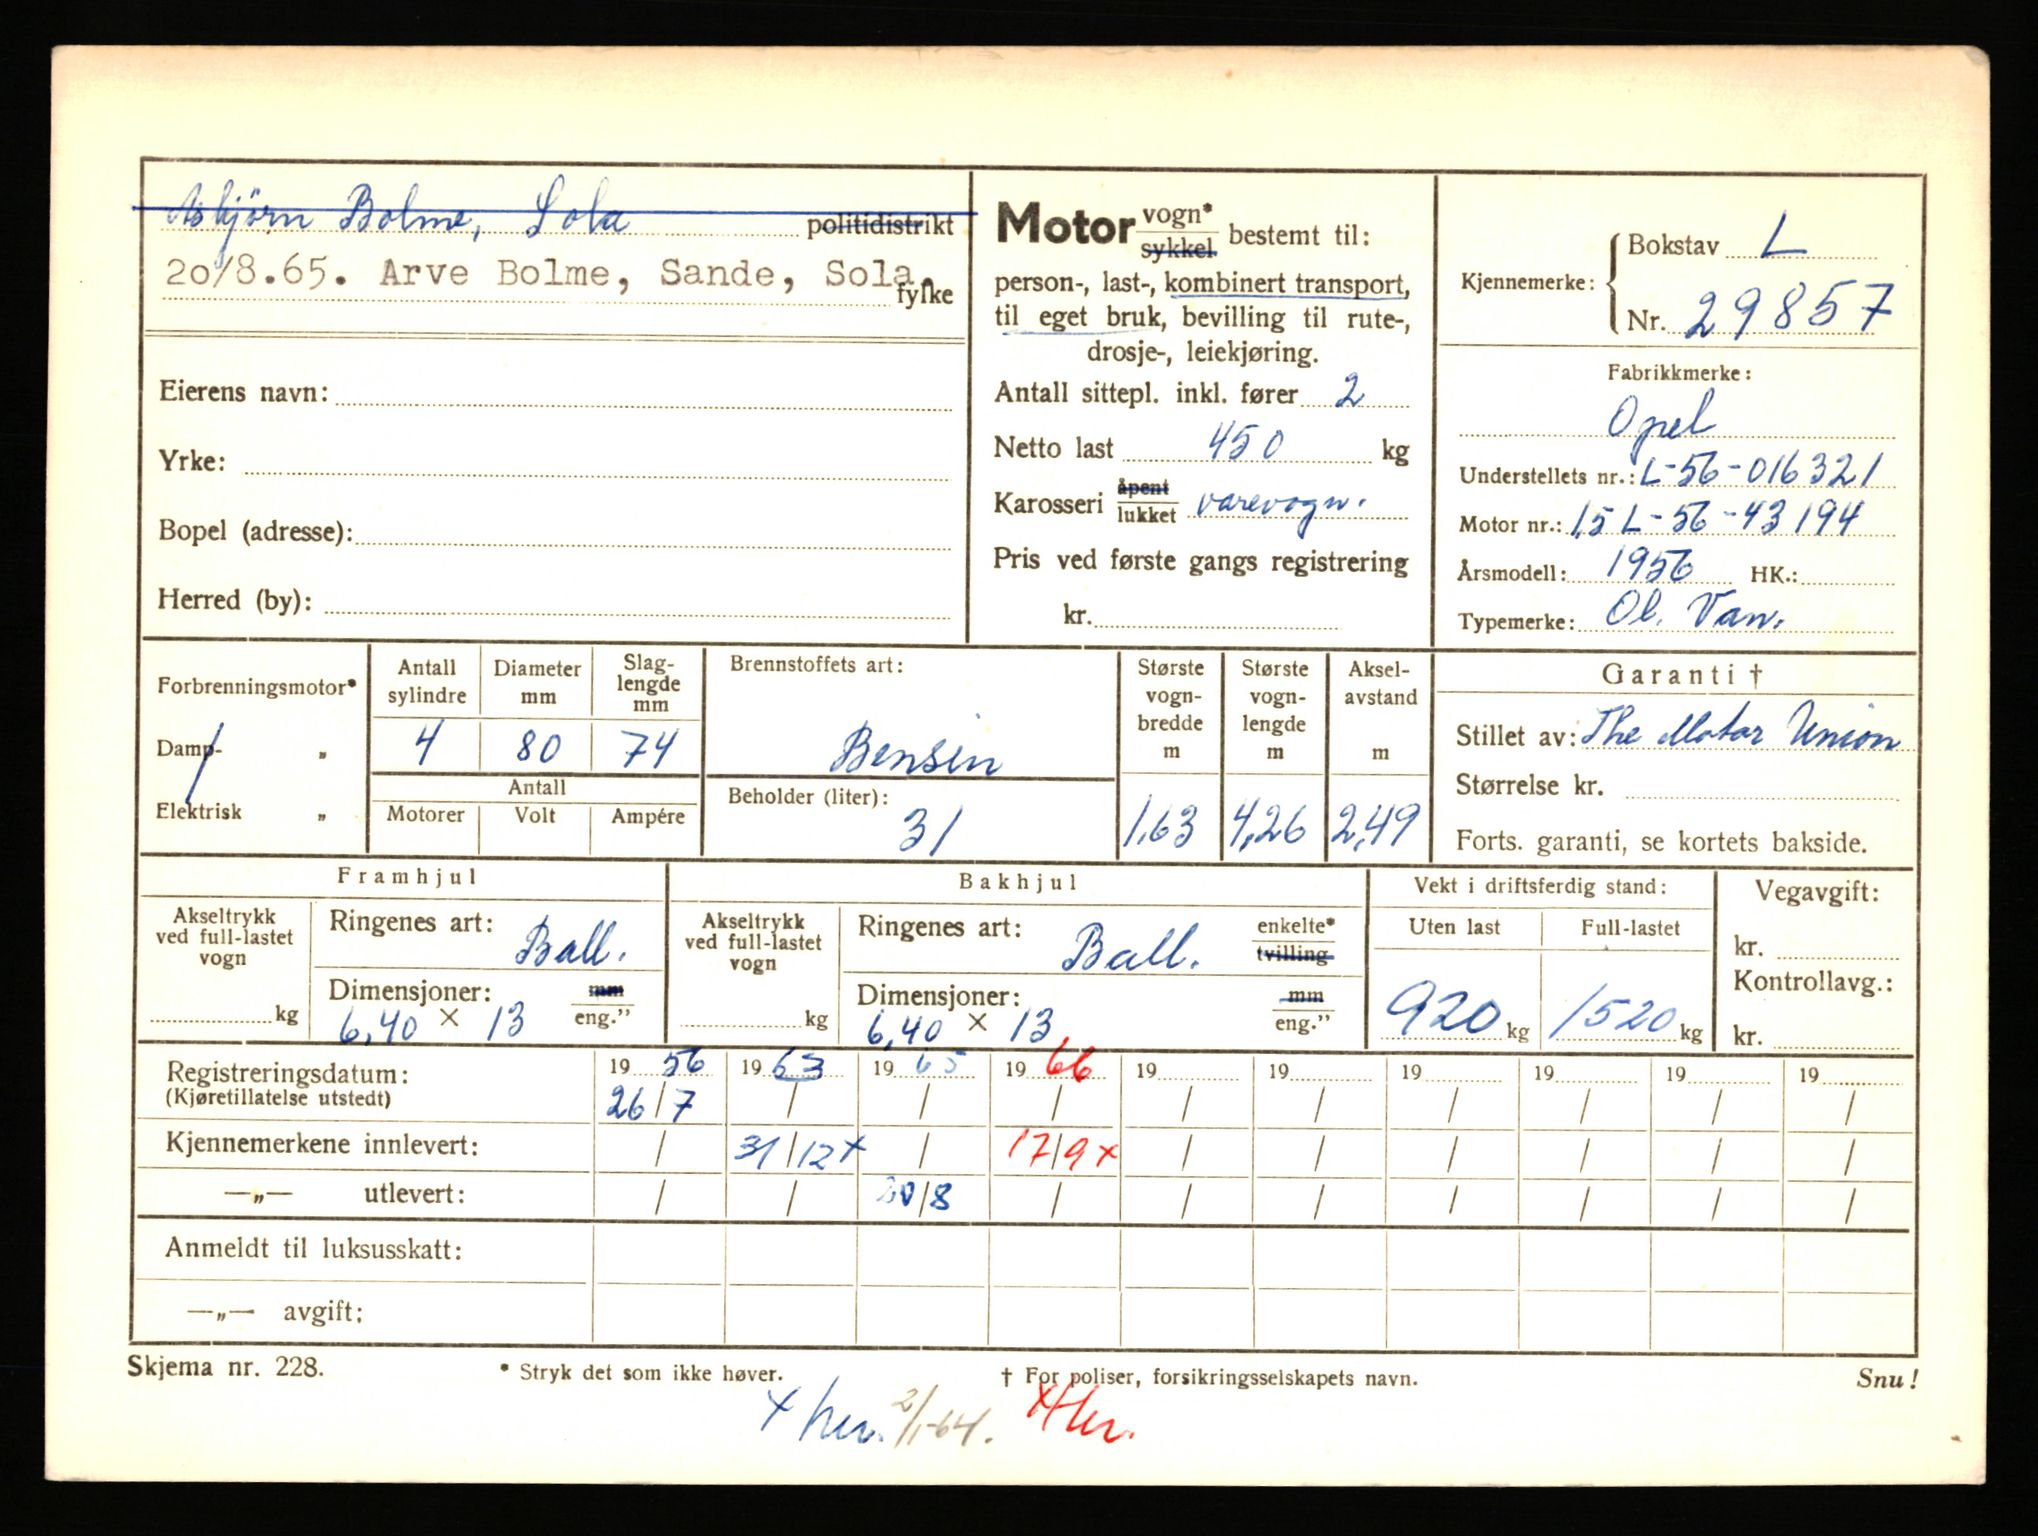 Asbjørn Bolme, Sola politidistrikt
20/8.65. Arve Bolme, Sande, Sola. fylke
Eierens navn:
Yrke:
Bopel (adresse):
Herred (by):
Motor vogn* sykkel bestemt til:
person-, last-, kombinert transport,
til eget bruk, bevilling til rute-,
drosje-, leiekjøring.
Antall sittepl. inkl. fører 2
Netto last 450 kg
Karosseri åpent lukket varevogn.
Pris ved første gangs registrering
kr.
Kjennemerke: Bokstav L
Nr. 29857
Fabrikkmerke:
Opel
Understellets nr.: L-56-016321
Motor nr.: 1,5 L-56-43194
Årsmodell: 1956 HK.:
Typemerke: Ol. Van.
Forbrenningsmotor*
Damp- „
Elektrisk „
Antall sylindre 4
Diameter mm 80
Slag-lengde mm 74
Antall
Motorer Volt Ampére
Brennstoffets art:
Bensin
Beholder (liter):
31
Største vogn-bredde m 1,63
Største vogn-lengde m 4,26
Aksel-avstand m 2,49
Garanti †
Stillet av: The Motor Union
Størrelse kr.
Forts. garanti, se kortets bakside.
Framhjul
Akseltrykk ved full-lastet vogn kg
Ringenes art: Ball.
Dimensjoner: mm eng.”
6,40 × 13
Bakhjul
Akseltrykk ved full-lastet vogn kg
Ringenes art: Ball. enkelte* tvilling
Dimensjoner: mm eng.”
6,40 × 13
Vekt i driftsferdig stand:
Uten last Full-lastet
920 kg 1520 kg
Vegavgift:
kr.
Kontrollavg.:
kr.
Registreringsdatum: 19 56 19 63 19 65 19 66 19 19 19 19 19 19
(Kjøretillatelse utstedt) 26/7 / / / / / / / / /
Kjennemerkene innlevert: / 31/12 x / 17/9 x / / / / / /
—„— utlevert: / / 20/8 / / / / / / /
Anmeldt til luksusskatt:
—„— avgift:
Skjema nr. 228. * Stryk det som ikke høver. † For poliser, forsikringsselskapets navn. Snu!
x her. 2/1-64. x Her.